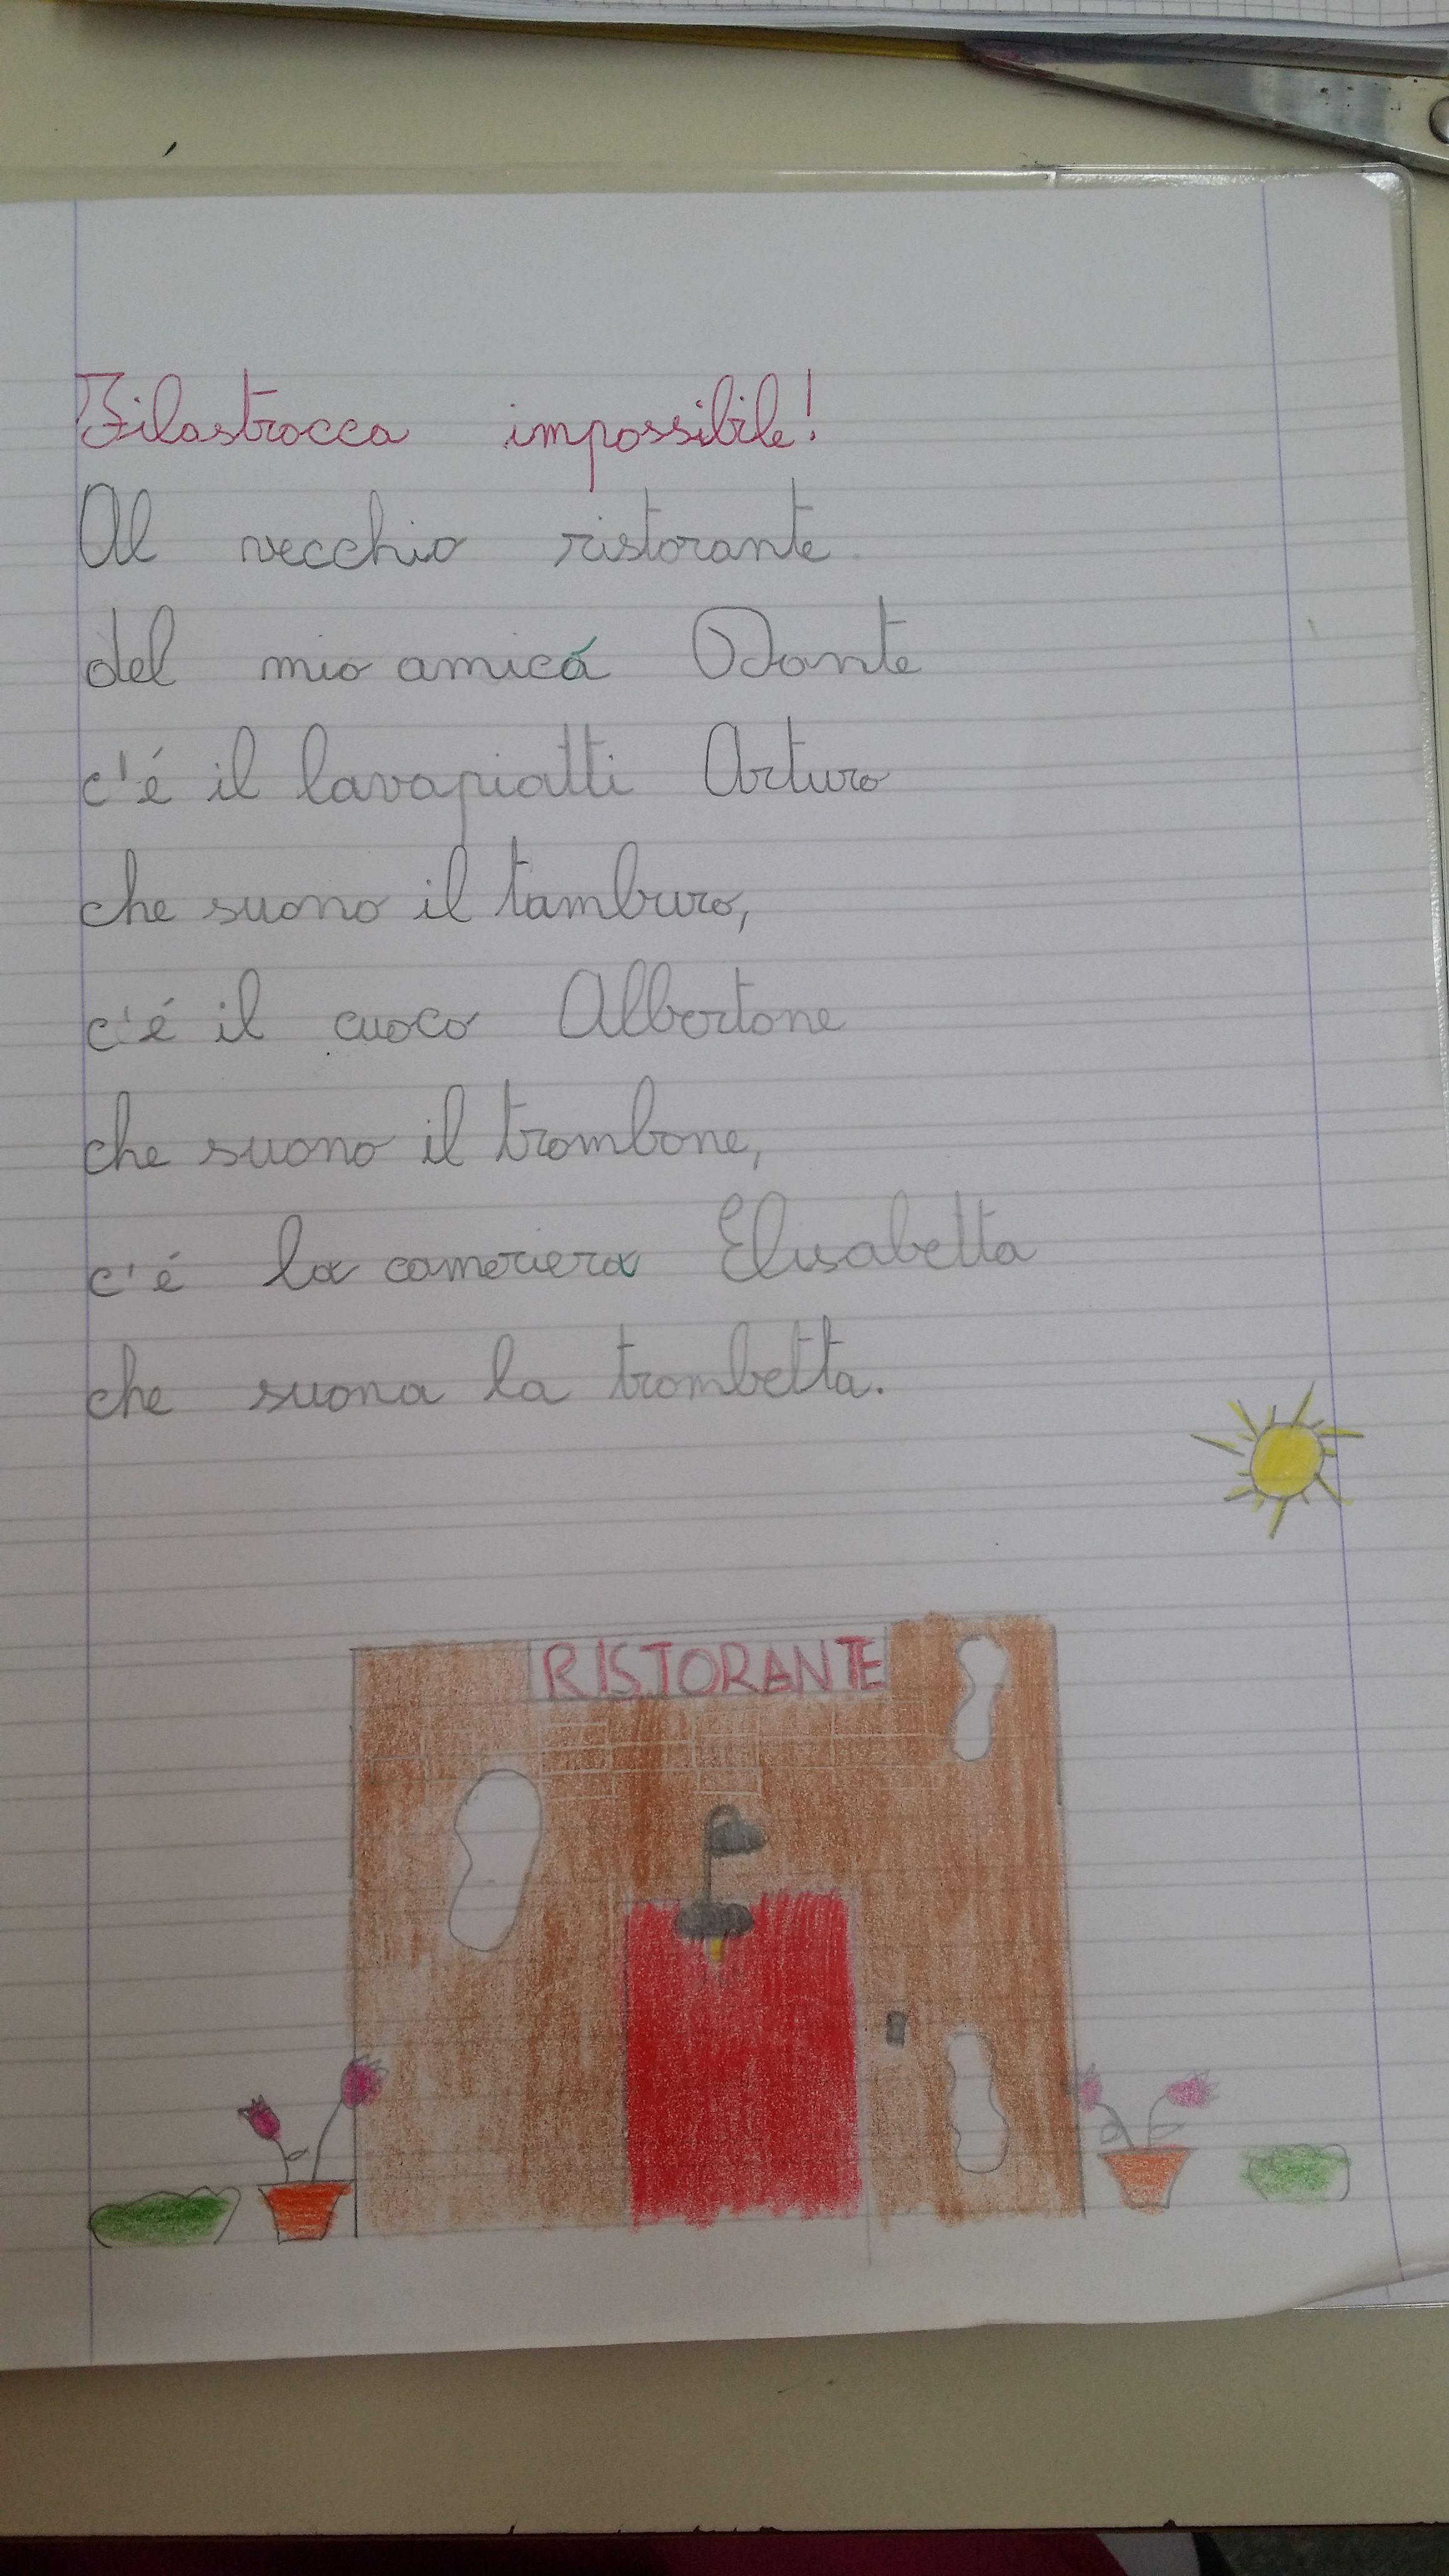 Filastrocca impossibile!
Al vecchio ristorante
del mio amico Dante
c'é il lavapiatti Arturo
che suono il tamburo,
c'é il cuoco Albertone
che suono il trombone,
c'é la cameriera Elisabetta
che suona la trombetta.
RISTORANTE